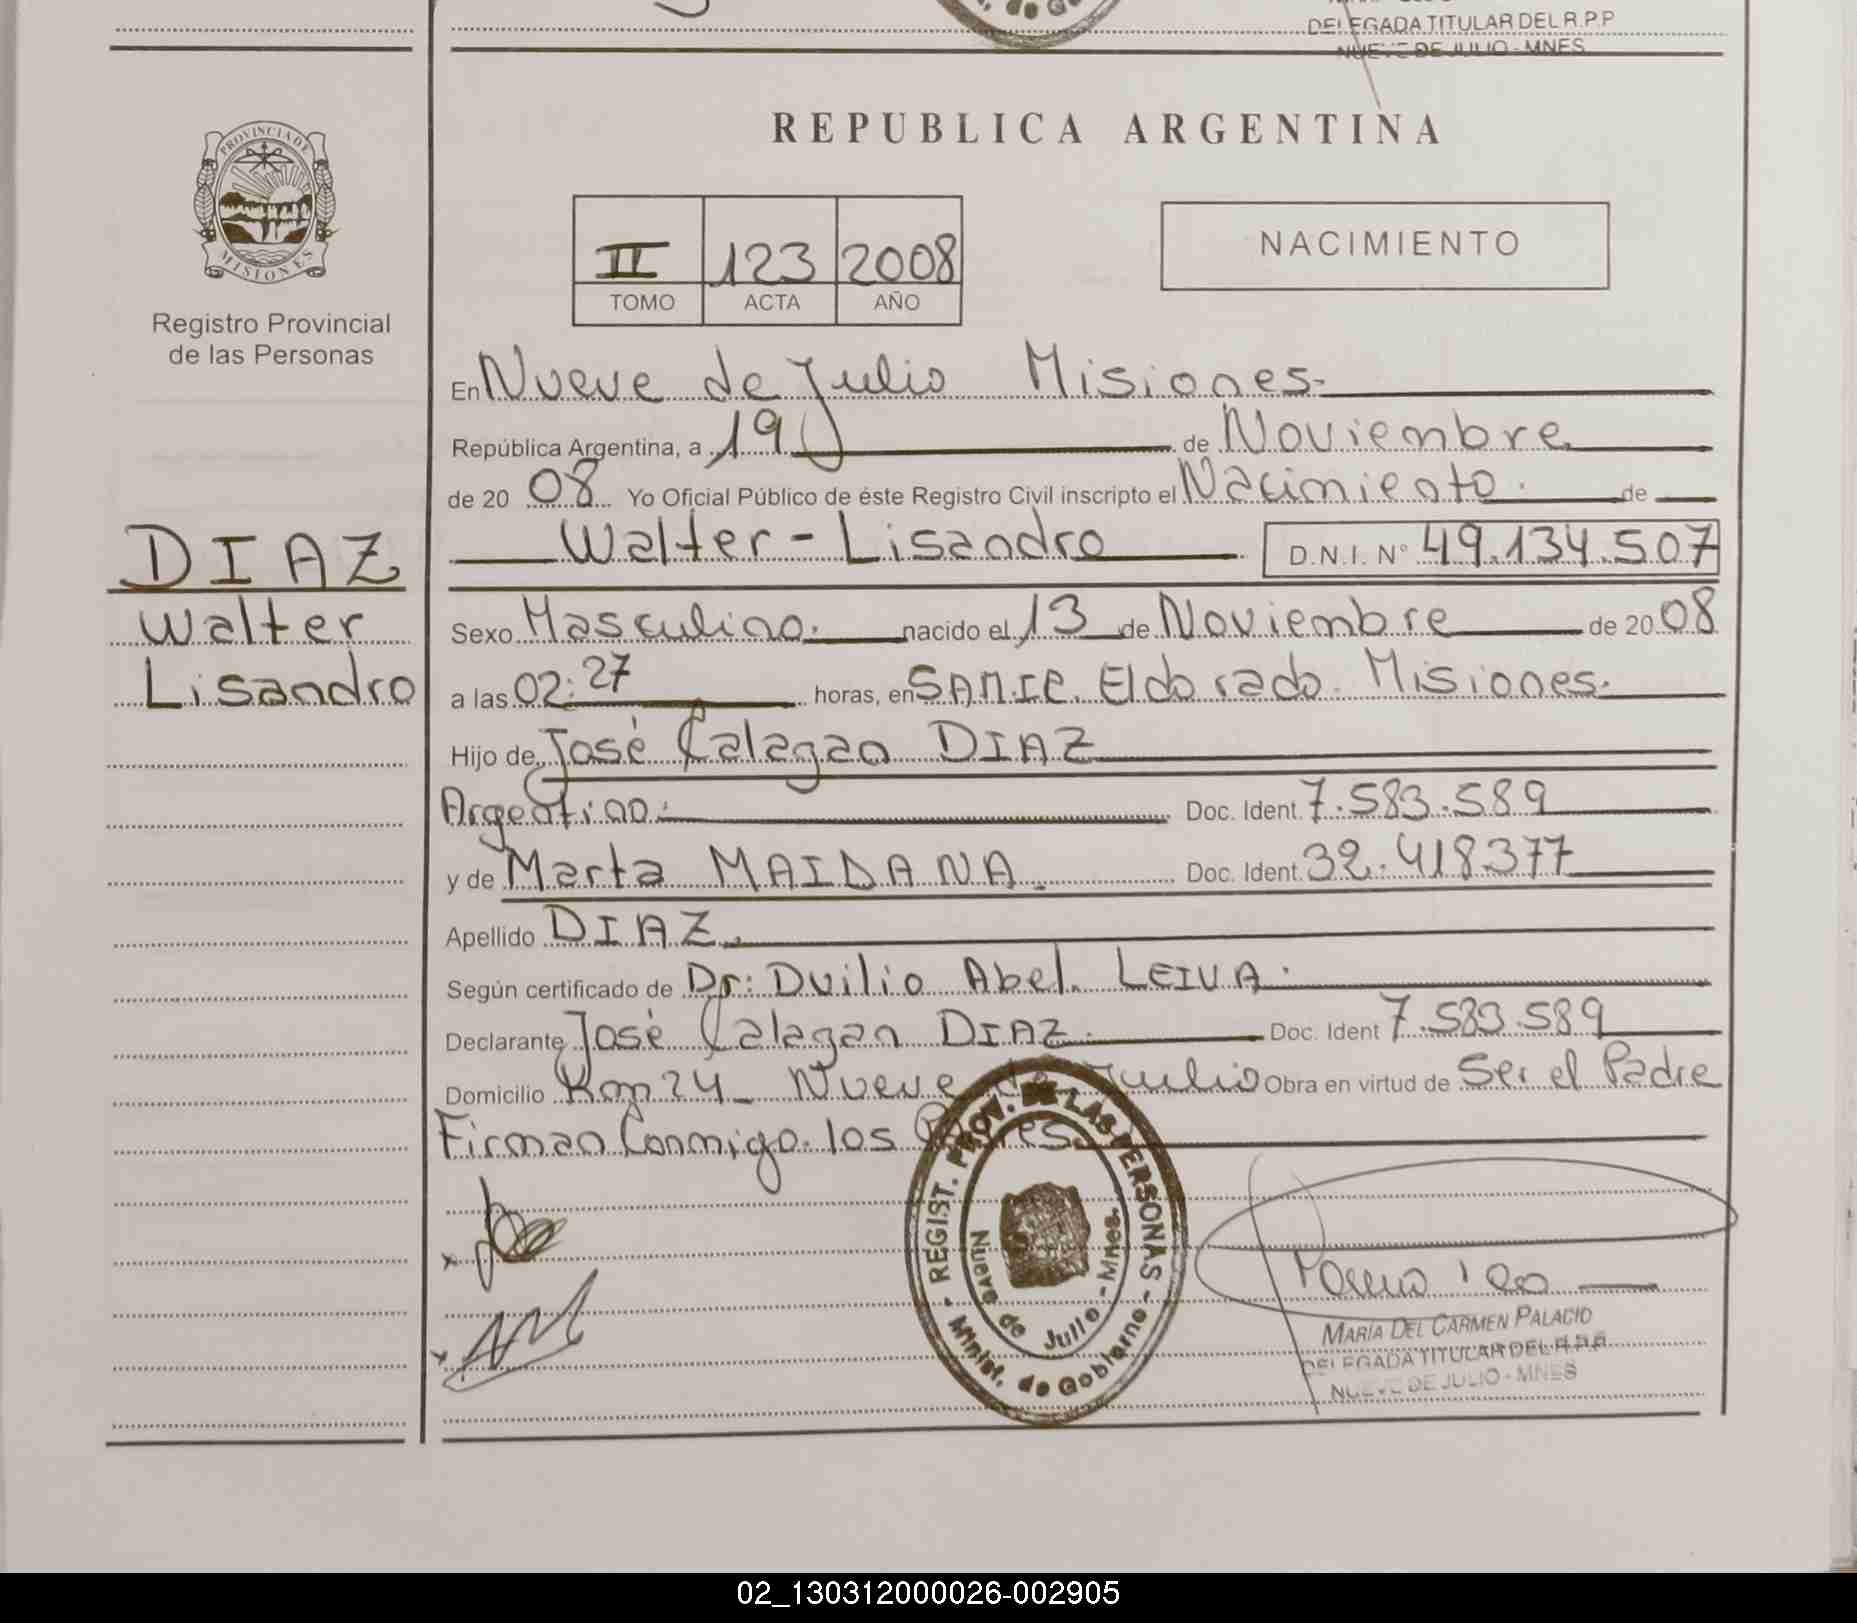 DELEGADA TITULAR DEL R.P.P
NUEVE DE JULIO - MNES
PROVINCIA DE
MISIONES
Registro Provincial
de las Personas
DIAZ
Walter
Lisandro
REPUBLICA ARGENTINA
II 123 2008
TOMO ACTA AÑO
NACIMIENTO
En Nueve de Julio Misiones.-
República Argentina, a 19 de Noviembre
de 20 08 Yo Oficial Público de éste Registro Civil inscripto el Nacimiento. de
Walter - Lisandro D.N.I. Nº 49.134.507
Sexo Masculino. nacido el 13 de Noviembre de 20 08
a las 02:27 horas, en SAMIC. Eldorado. Misiones.
Hijo de José Calazan DIAZ
Argentino. Doc. Ident. 7.583.589
y de Marta MAIDANA. Doc. Ident. 32.418377
Apellido DIAZ.
Según certificado de Dr: Duilio Abel. LEIVA.
Declarante José Calazan DIAZ. Doc. Ident 7.583.589
Domicilio Km 24 - Nueve de Julio Obra en virtud de Ser el Padre
Firman Conmigo. los Padres.
REGIST. PROV. DE LAS PERSONAS
Minist. de Gobierno
Nueve de Julio - Mnes.
MARÍA DEL CARMEN PALACIO
DELEGADA TITULAR DEL R.P.P.
NUEVE DE JULIO - MNES
02_130312000026-002905